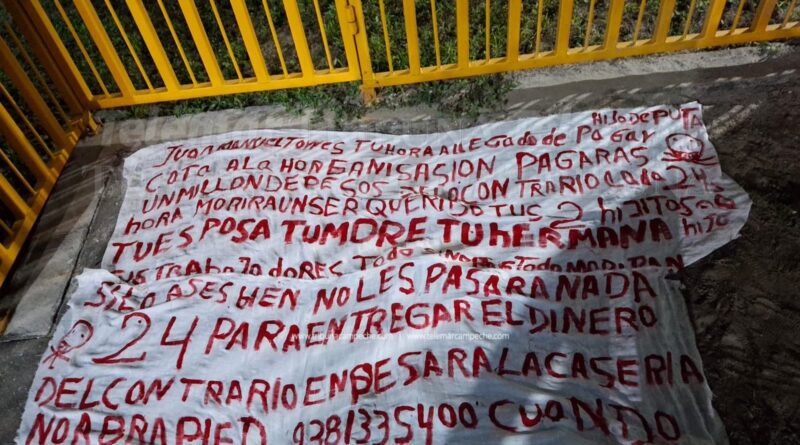 HIJO DE PUTA
JUAN MANUEL TORRES TU HORA A LLEGADO de PAGAR
COTA A LA HORGANISASION PAGARAS
UN MILLON DE PESOS DELO CONTRARIO CADA 24
HORA MORIRA UN SER QUERIDO TUS 2 hIJITOS
TU ESPOSA TU MDRE TU hERMANA hIJO
TRABAJADORES TODO TODO
SILO ASES NO LES PASARA NADA
24 PARA ENTREGAR EL DINERO
www.tribunacampeche.com | www.telemarcampeche.com
DEL CONTRARIO ENPESARA LA CASERIA
NO ABRA PIED 9381335400 CUANDO